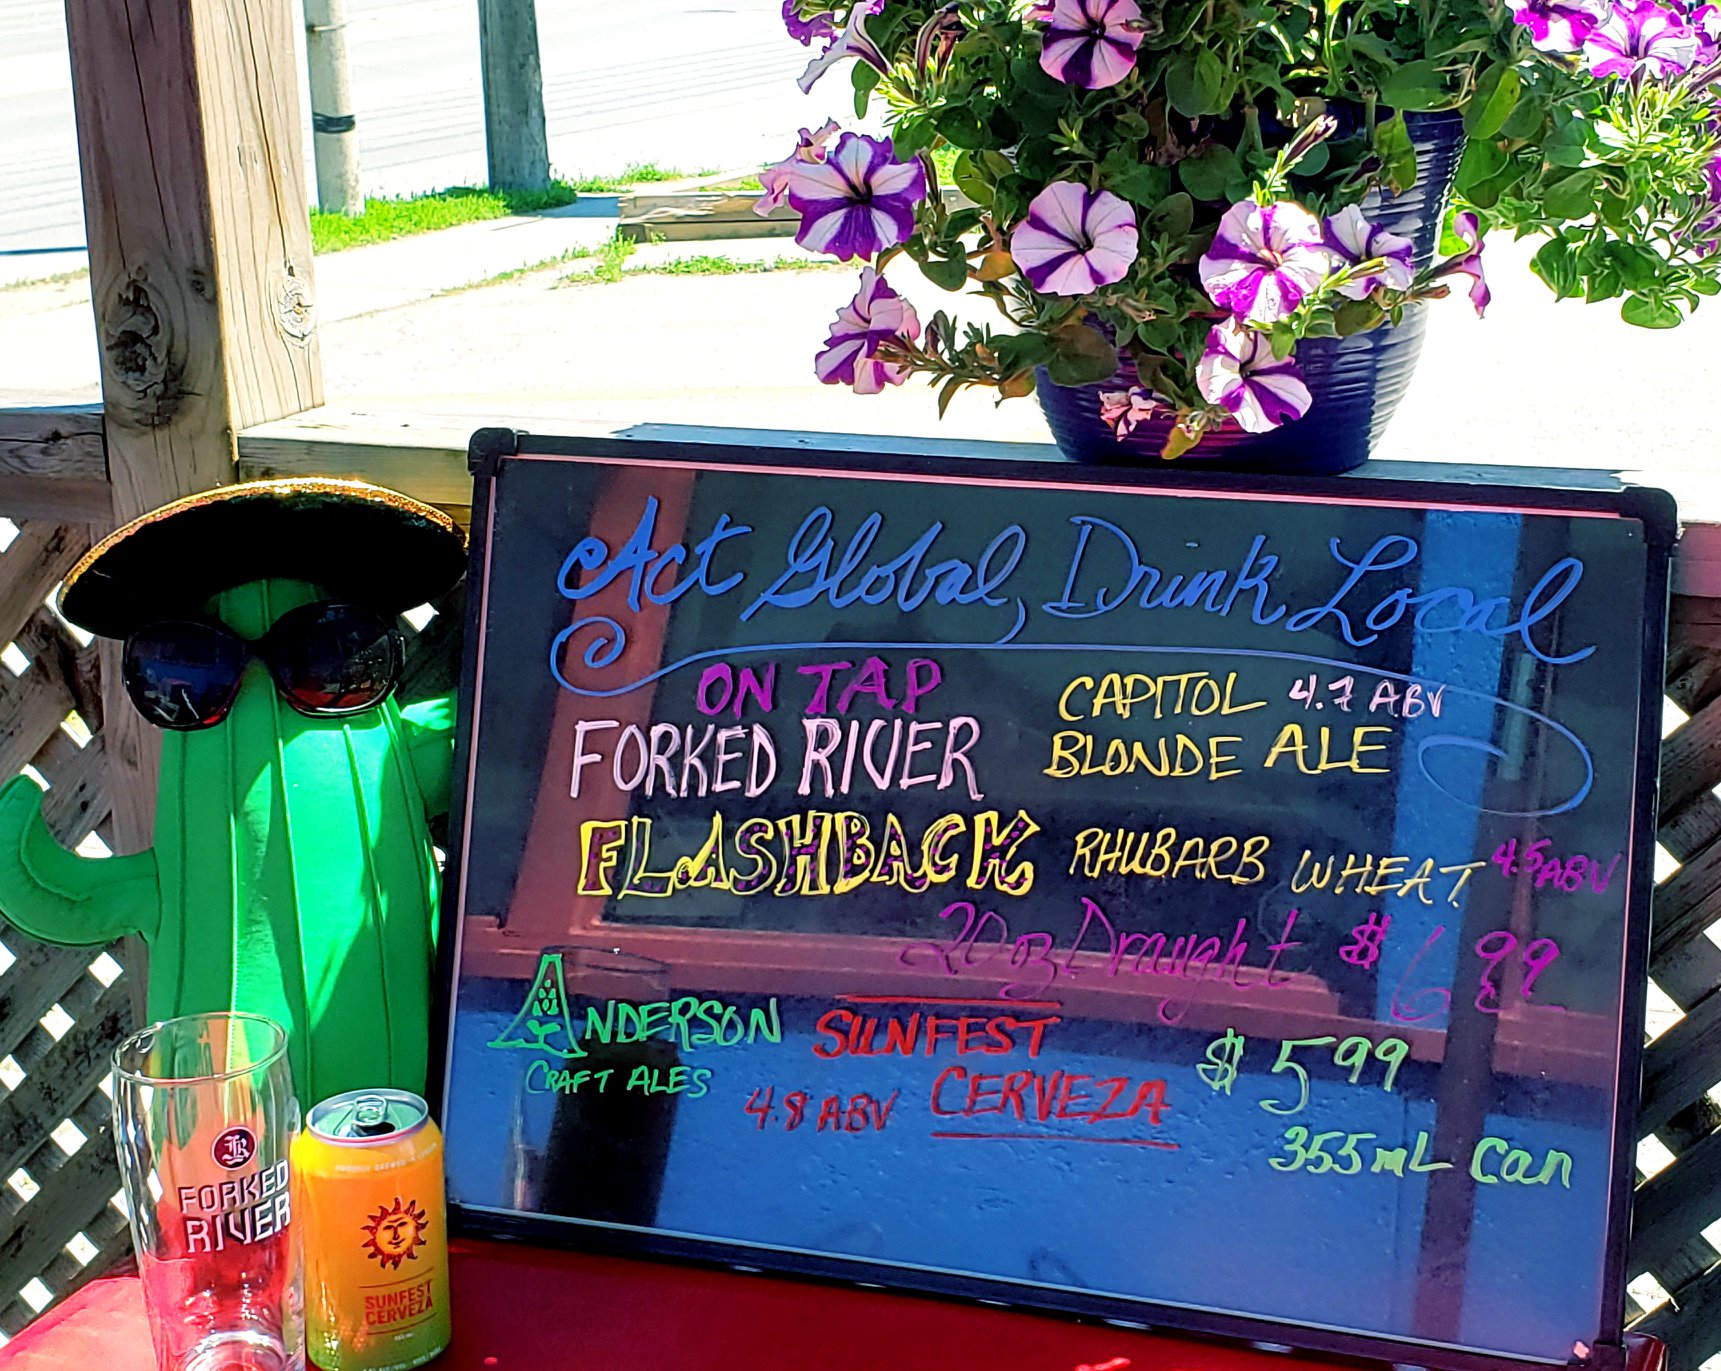 Act Global, Drink Local
ON TAP
FORKED RIVER
CAPITOL 4.7 ABV
BLONDE ALE
FLASHBACK RHUBARB WHEAT. 4.5 ABV
20oz Draught $6.99
ANDERSON
CRAFT ALES
SUNFEST
CERVEZA
4.8 ABV
$5.99
355mL Can
FR
FORKED
RIVER
SUNFEST
CERVEZA